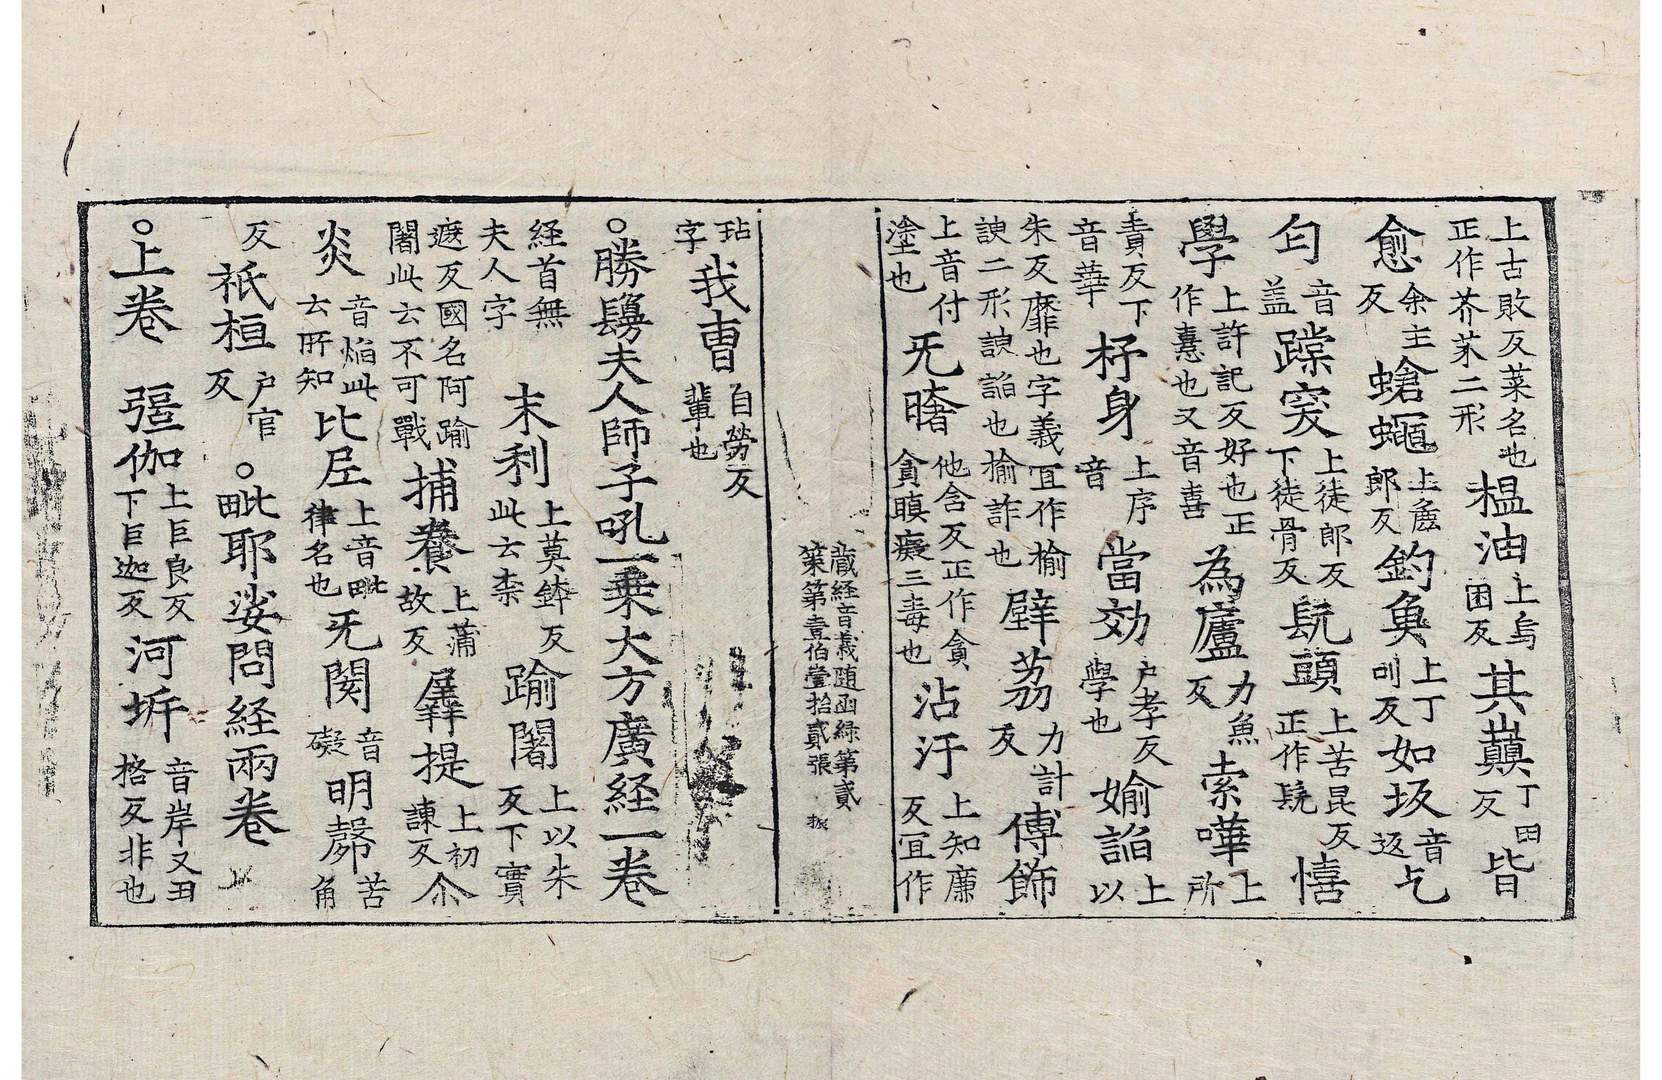 上古敗反菜名也正作芥芥二形榲油上烏困反其巔丁田反皆
愈余主反螥蠅上麁郎反釣魚上丁叫反如坂音返乞
匄音盖蹚突上徒郎反下徒骨反髡頭上苦昆反正作髡憘
學上許記反好也正作憙也又音喜為廬力魚反索嘩上所
責反下音華杼身上序音當効户孝反學也媮諂上以
朱反靡也字義冝作榆諛二形諛諂也揄詐也擘荔力計反傅飾
上音付塗也旡䐺他含反正作貪貪瞋癡三毒也沾汙上知廉反冝作
藏経音義随函録第貳
第壹伯壹拾貳張
玷字我曺自勞反輩也
○勝鬘夫人師子吼一乗大方廣経一卷
経首無夫人字末利上莫鉢反此云柰踰闍上以朱反下實
遮反國名阿踰闍此云不可戰捕養上蒲故反羼提上初諫反尒
炎音焔此云所知比丘上音毗律名也旡閡音礙明㱿苦角
反祇桓户官反○毗耶娑問経兩卷
○上卷彊伽上巨良反下巨迦反河圻音岸又丑格反非也